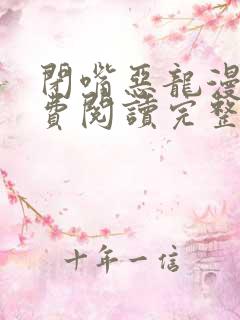 閉嘴惡龍漫
費閱讀完整
十年一信